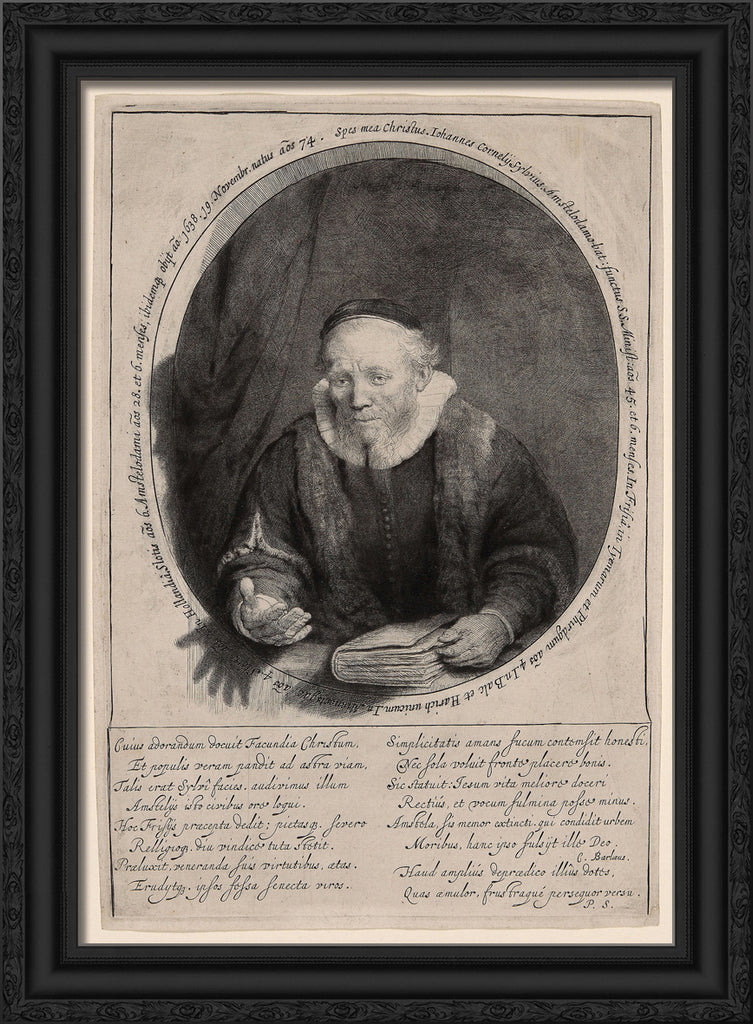 Spes mea Christus. Iohannes Cornelÿ Sylvius, Amstelodamo-bat: functus S.S. Minist: aōs 45. et 6. menses. In Frisiâ, in Tyenarum et Phirdgum aōs 4. In Balc et Harich unicum. In aōs 4. In Hollandia, Slotis aōs 6. Amstelodami aōs 28. et 6. menses; ibidemq obÿt aō. 1638. 19. Novembr. natus aōs 74.
Cuius adorandum docuit Facundia Christum,
Et populis veram pandit ad astra viam,
Talis erat Sylvî facies. audivimus illum
Amstelÿs isto civibus ore loqui.
Hoc Frisÿs præcepta dedit; pietasq. severo
Relligioq. diu vindice tuta stetit.
Præluxit, veneranda suis virtutibus, ætas.
Erudytq. ipsos fessa senecta viros.
Simplicitatis amans fucum contemsit honesti,
Nec sola voluit fronte placere bonis.
Sic statuit: Iesum vita meliore doceri
Rectiùs, et vocum fulmina posse minus.
Amstela, sis memor extincti. qui condidit urbem
Moribus, hanc ipso fulsÿt ille Deo.
C. Barlæus.
Haud ampliús deprædico illius dotes,
Quas æmulor, frustraqué persequor versu.
P. S.